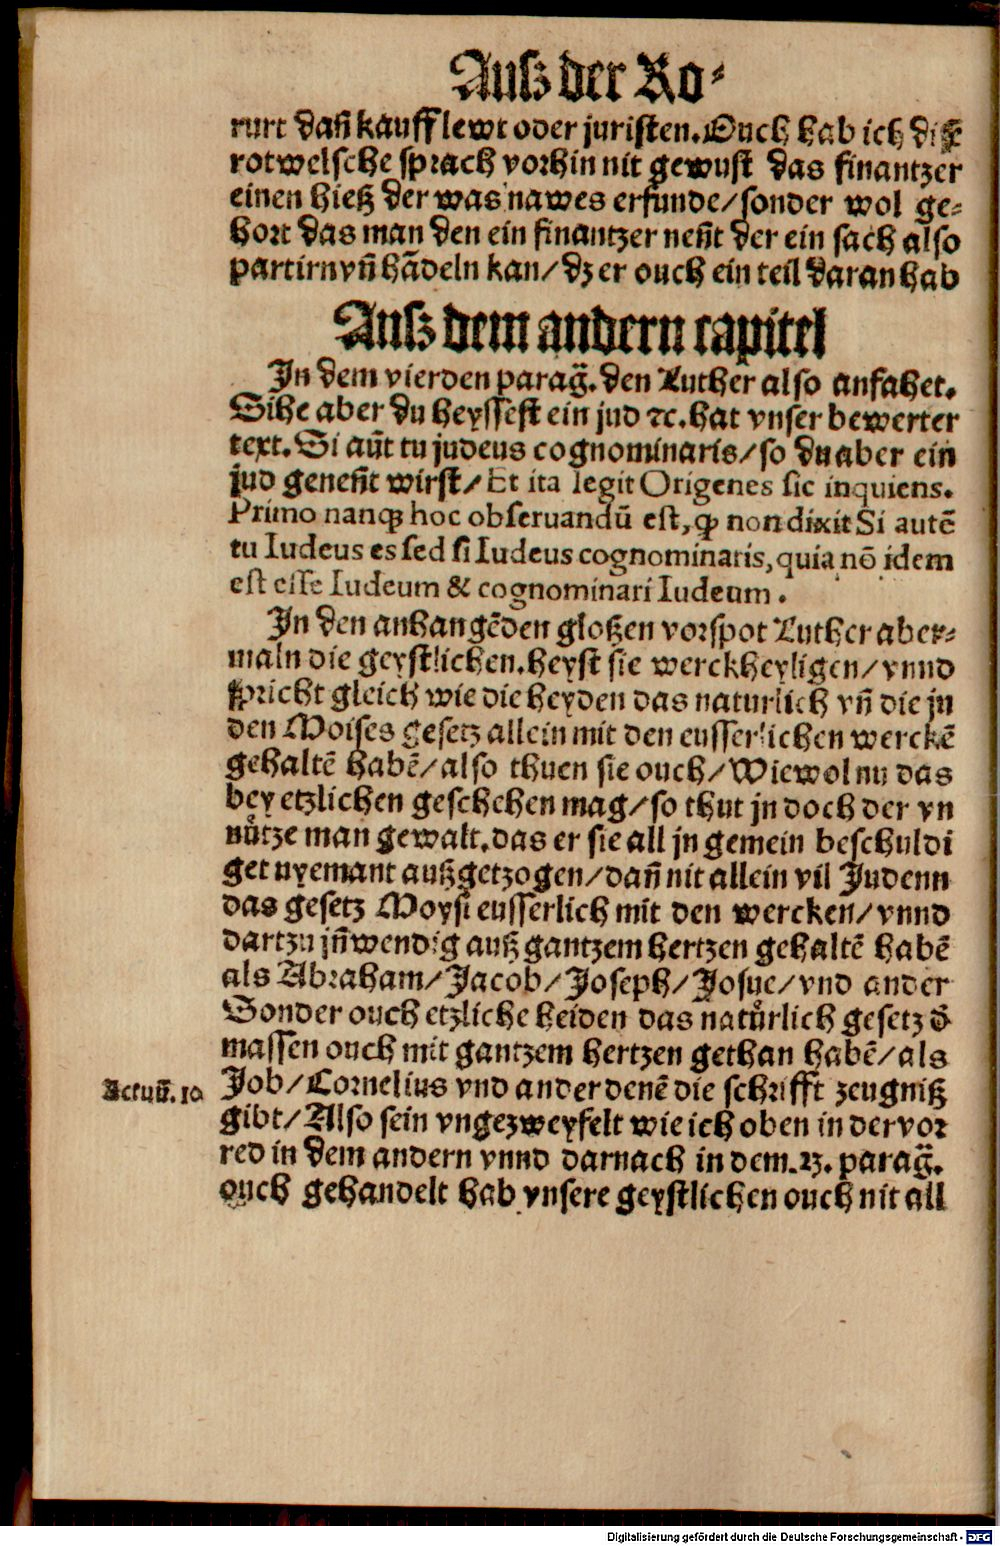 Ausz der Ro-
rurt dañ kauff lewt oder juristen. Ouch hab ich diſz
rotwelsche sprach vorhin nit gewust das finantzer
einen hieß der was nawes erfunde/ sonder wol ge-
hort das man den ein finantzer neñt der ein sach also
partirn vñ hãdeln kan/ dz er ouch ein teil daran hab
Ausz dem andern capitel
In dem vierden parag̃. den Luther also anfahet.
Sihe aber du heyssest ein jud ⁊c. hat vnser bewerter
text. Si aũt tu judeus cognominaris/ so du aber ein
jud geneñt wirst/ Et ita legit Origenes sic inquiens.
Primo nanqꝫ hoc obseruandũ est, ꝙ non dixit Si autẽ
tu Iudeus es sed si Iudeus cognominaris, quia nõ idem
est esse Iudeum & cognominari Iudeum.
In den anhangẽden gloßen vorspot Luther aber-
maln die geystlichen. heyst sie werckheyligen/ vnnd
spricht gleich wie die heyden das naturlich vñ die ju
den Moises gesetz allein mit den eusserlichen werckẽ
gehaltẽ habẽ/ also thuen sie ouch/ Wiewol nu das
bey etzlichen geschehen mag/ so thut jn doch der vn
nuͤtze man gewalt. das er sie all jn gemein beschuldi
get nyemant außgetzogen/ dañ nit allein vil Judenn
das gesetz Moysi eusserlich mit den wercken/ vnnd
dartzu jñwendig auß gantzem hertzen gehaltẽ habẽ
als Abraham/ Jacob/ Joseph/ Josue/ vnd ander
Sonder ouch etzliche heiden das natuͤrlich gesetz d̄
massen ouch mit gantzem hertzen gethan habẽ/ als
Actuũ. 10 Job/ Cornelius vnd ander denẽ die schrifft zeugniß
gibt/ Also sein vngezweyfelt wie ich oben in der vor
red in dem andern vnnd darnach in dem. 23. parag̃.
ouch gehandelt hab vnsere geystlichen ouch nit all
Digitalisierung gefördert durch die Deutsche Forschungsgemeinschaft - DFG